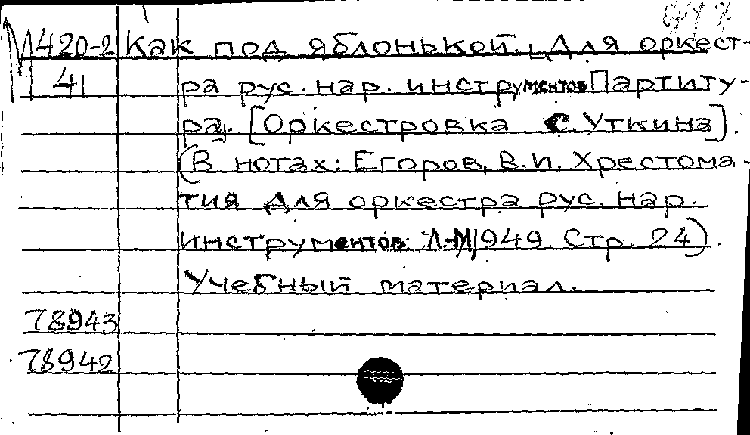 М420-2 Как под яблонькой. [Для оркест-
41 ра рус. нар. инструментов Партиту-
ра]. [Оркестровка С. Уткина].
(В нотах: Егоров, В.И. Хрестома-
тия для оркестра рус. нар.
инструментов Л-М, 1949 Стр. 24).
Учебный материал.
78943
78942